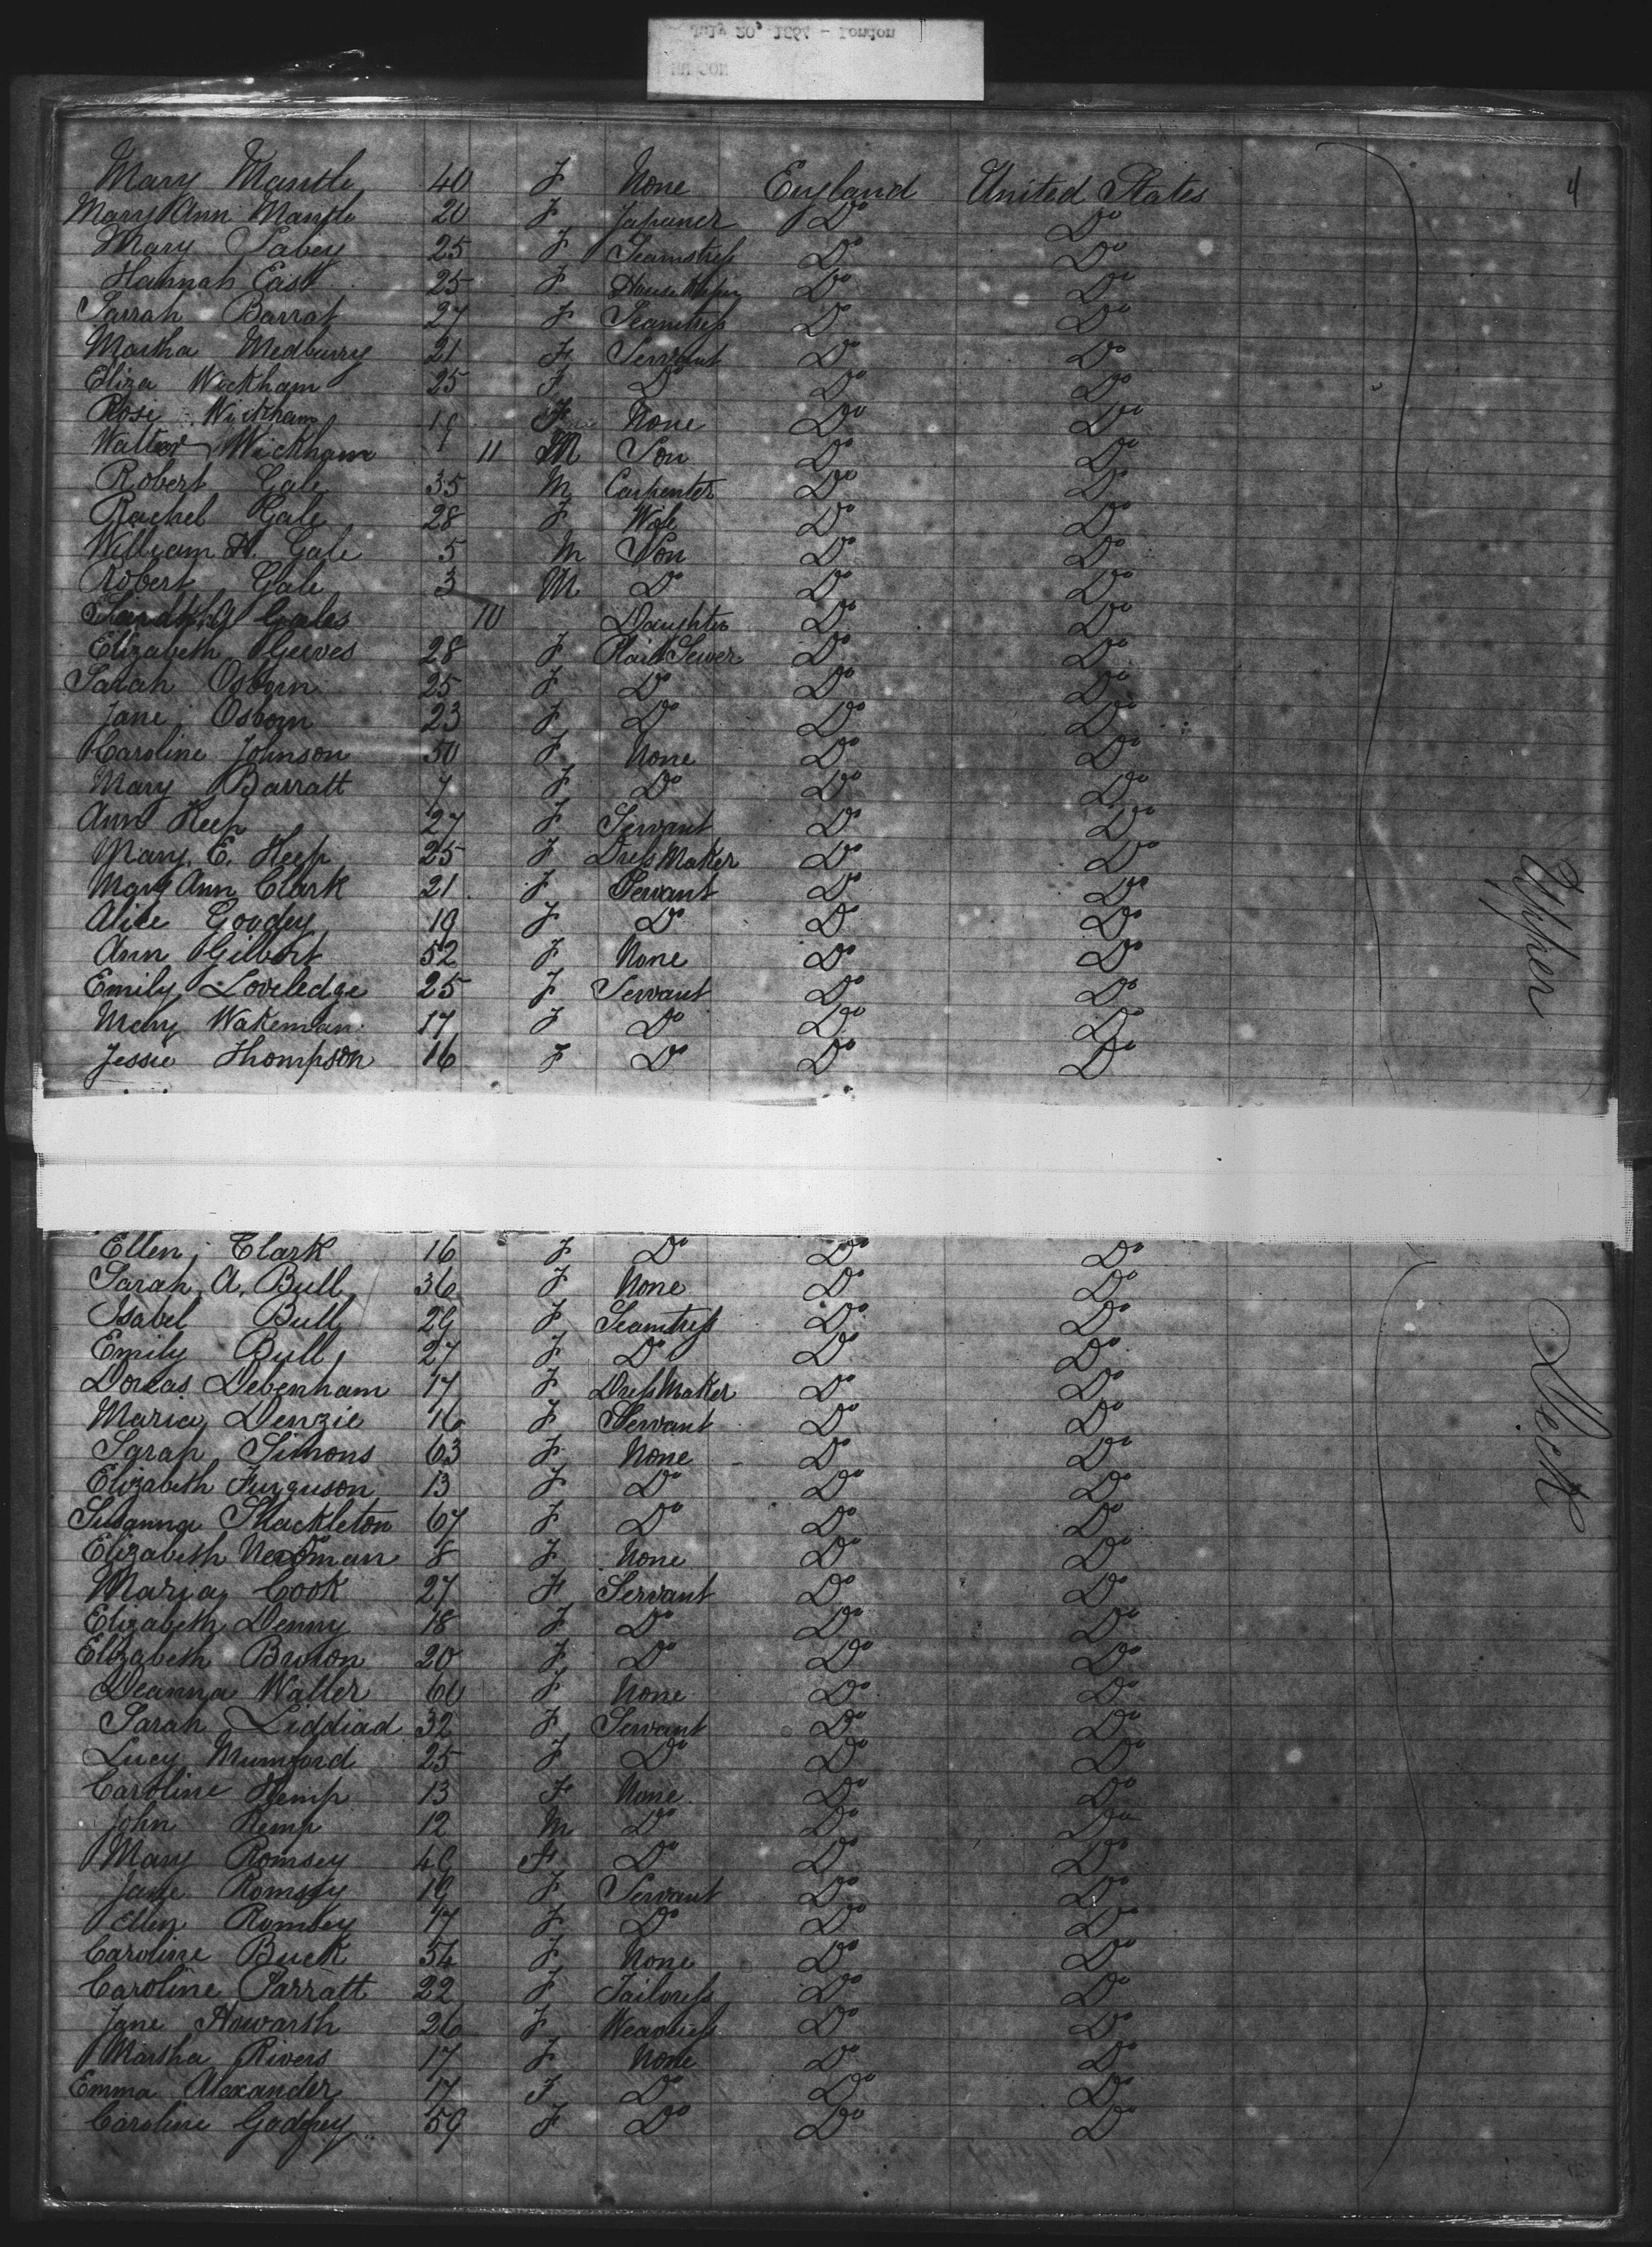 July 20, 1864 - London
4
Mary Mantle 40 F None England United States
Mary Ann Mantle 20 F Japaner Do Do
Mary Pabey 25 F Seamstress Do Do
Hannah East 25 F House Keeper Do Do
Sarrah Barrat 27 F Seamtress Do Do
Martha Medburry 21 F Servant Do Do
Eliza Wickham 25 F Do Do Do
Rose Wickham 19 F None Do Do
Walter Wickham 11 M Son Do Do
Robert Gale 35 M Carpenter Do Do
Rachel Gale 28 F Wife Do Do
William H. Gale 5 M Son Do Do
Robert Gale 3 M Do Do Do
Gales 10 Daughter Do Do
Elizabeth Geeves 28 F Plait Sewer Do Do
Sarah Osborn 25 F Do Do Do
Jane Osborn 23 F Do Do Do
Caroline Johnson 50 F None Do Do
Mary Barratt 7 F Do Do Do
Ann Keep 27 F Servant Do Do
Mary E. Keep 25 F Dress Maker Do Do
Mary Ann Clark 21 F Servant Do Do
Alice Goodey 19 F Do Do Do
Ann Gilbert 52 F None Do Do
Emily Loveledge 25 F Servant Do Do
Mary Wakeman 17 F Do Do Do
Jessie Thompson 16 F Do Do Do
Upper
Ellen Clark 16 F Do Do Do
Sarah A. Bull 36 F None Do Do
Isabel Bull 29 F Seamtress Do Do
Emily Bull 27 F Do Do Do
Dorcas Debenham 17 F Dress Maker Do Do
Maria Denzie 16 F Servant Do Do
Sarah Simons 63 F None Do Do
Elizabeth Furguson 13 F Do Do Do
Susanna Shackleton 67 F Do Do Do
Elizabeth Newman 8 F None Do Do
Maria Cook 27 F Servant Do Do
Elizabeth Denny 18 F Do Do Do
Elizabeth Bruton 20 F Do Do Do
Deanna Walter 60 F None Do Do
Sarah Liddiad 32 F Servant Do Do
Lucy Mumford 25 F Do Do Do
Caroline Kemp 13 F None Do Do
John Kemp 12 M Do Do Do
Mary Romsey 49 F Do Do Do
Jane Romsey 19 F Servant Do Do
Ellen Romsey 17 F Do Do Do
Caroline Buck 54 F None Do Do
Caroline Parratt 22 F Tailoress Do Do
Jane Howarth 26 F Weaveress Do Do
Martha Rivers 17 F None Do Do
Emma Alexander 17 F Do Do Do
Caroline Godfrey 59 F Do Do Do
Deck